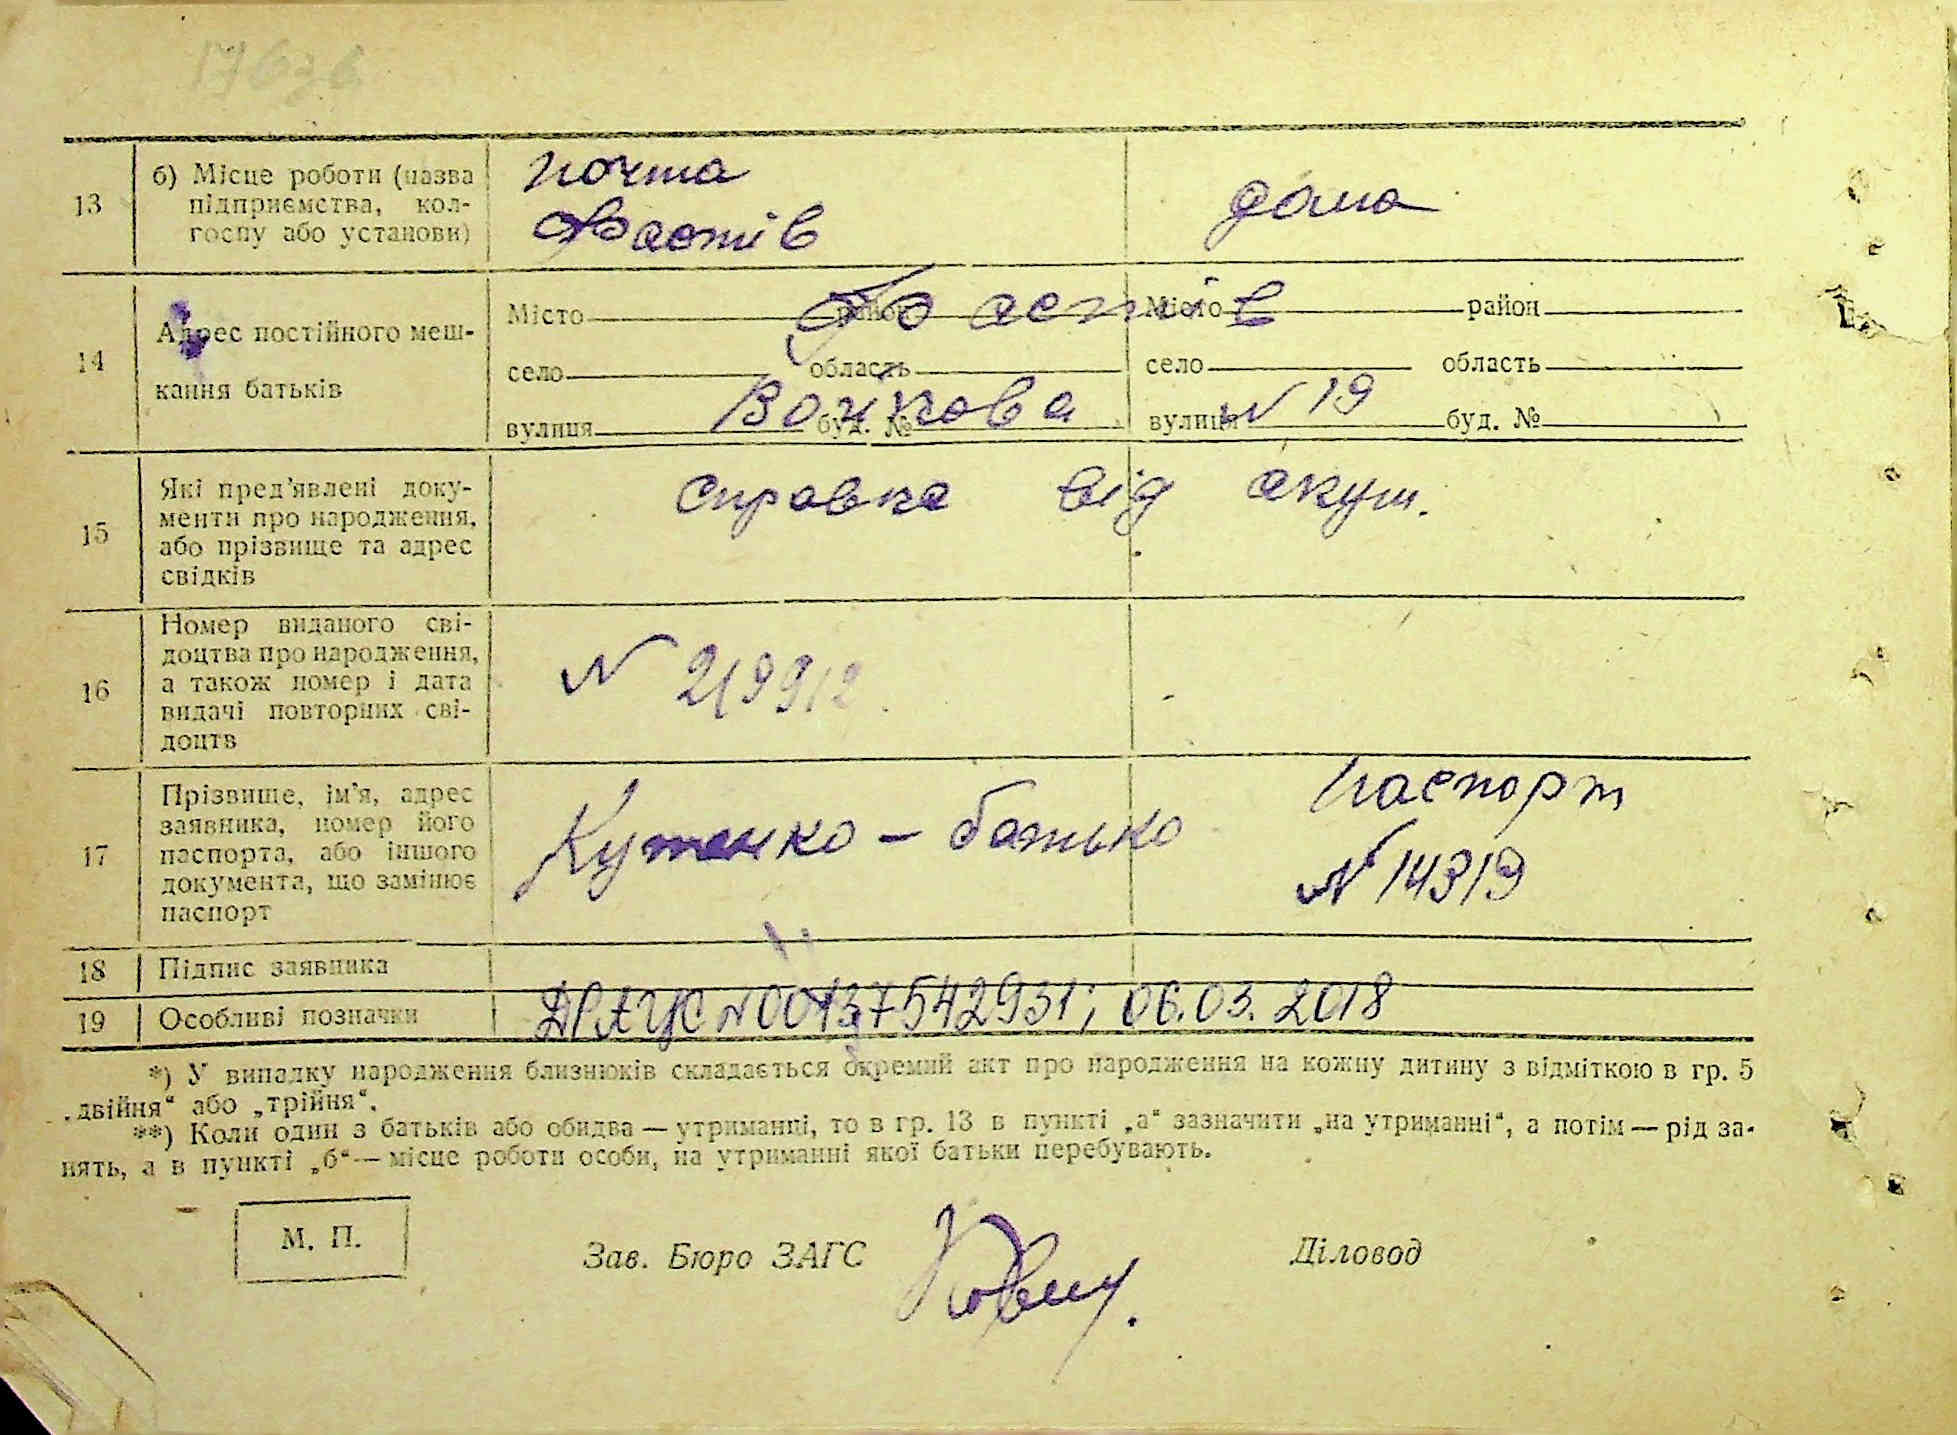 13
б) Місце роботи (назва
підприємства, кол-
госпу або установи)
почта
Фастів
дома
14
Адрес постійного меш-
кання батьків
Місто район Місто район
Фастів
село область село область
вулиця буд. № вулиця буд. №
Войкова N 19
15
Які пред'явлені доку-
менти про народження,
або прізвище та адрес
свідків
Справка від акуш.
16
Номер виданого сві-
доцтва про народження,
а також номер і дата
видачі повторних сві-
доцтв
N 219912.
17
Прізвище, ім'я, адрес
заявника, номер його
паспорта, або іншого
документа, що замінює
паспорт
Кутенко - батько
Паспорт
N 14319
18 Підпис заявника
19 Особливі позначки
ДРАЦС N00137542931; 06.03.2018
*) У випадку народження близнюків складається окремий акт про народження на кожну дитину з відміткою в гр. 5
„двійня“ або „трійня“.
**) Коли один з батьків або обидва — утриманці, то в гр. 13 в пункті „а“ зазначити „на утриманні“, а потім — рід за-
нять, а в пункті „б“ — місце роботи особи, на утриманні якої батьки перебувають.
М. П.
Зав. Бюро ЗАГС
Діловод